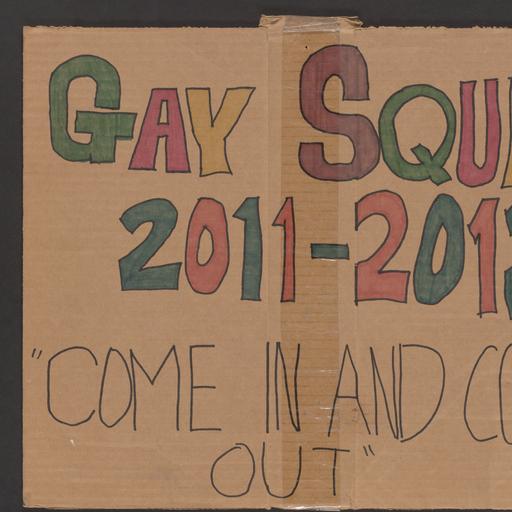 GAY SQU
2011-201
"COME IN AND CO
OUT"